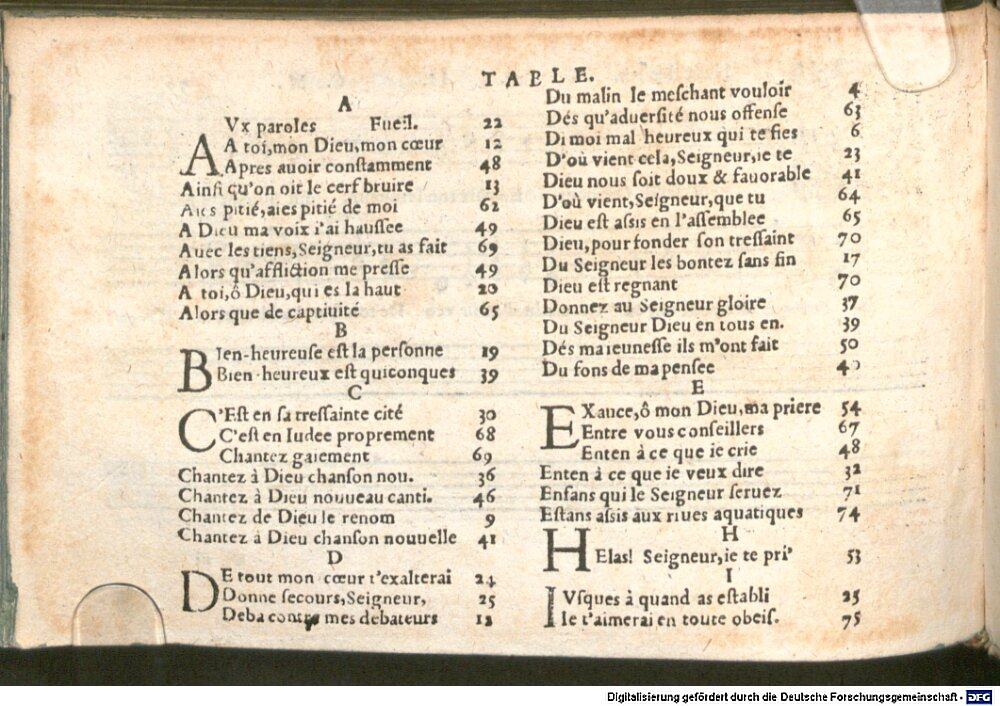 TABLE.
A
AVx paroles Fueil. 22
A toi, mon Dieu, mon cœur 12
Apres auoir conſtamment 48
Ainſi qu'on oit le cerf bruire 13
Aies pitié, aies pitié de moi 62
A Dieu ma voix i'ai hauſſee 49
Auec les tiens, Seigneur, tu as fait 69
Alors qu'affliction me preſſe 49
A toi, ô Dieu, qui es la haut 20
Alors que de captiuité 65
B
BIen-heureuſe eſt la perſonne 19
Bien-heureux eſt quiconques 39
C
C'Eſt en ſa treſſainte cité 30
C'eſt en Iudee proprement 68
Chantez gaiement 69
Chantez à Dieu chanſon nou. 36
Chantez à Dieu nouueau canti. 46
Chantez de Dieu le renom 9
Chantez à Dieu chanſon nouuelle 41
D
DE tout mon cœur t'exalterai 24
Donne ſecours, Seigneur, 25
Deba contre mes debateurs 12
Du malin le meſchant vouloir 4
Dés qu'aduerſité nous offenſe 63
Di moi mal heureux qui te fies 6
D'où vient cela, Seigneur, ie te 23
Dieu nous ſoit doux & fauorable 41
D'où vient, Seigneur, que tu 64
Dieu eſt aſsis en l'aſſemblee 65
Dieu, pour fonder ſon treſſaint 70
Du Seigneur les bontez ſans fin 17
Dieu eſt regnant 70
Donnez au Seigneur gloire 37
Du Seigneur Dieu en tous en. 39
Dés ma ieuneſſe ils m'ont fait 50
Du fons de ma penſee 40
E
EXauce, ô mon Dieu, ma priere 54
Entre vous conſeillers 67
Enten à ce que ie crie 48
Enten à ce que ie veux dire 32
Enfans qui le Seigneur ſeruez 71
Eſtans aſsis aux riues aquatiques 74
H
HElas! Seigneur, ie te pri' 53
I
IVſques à quand as eſtabli 25
Ie t'aimerai en toute obeiſ. 75
Digitalisierung gefördert durch die Deutsche Forschungsgemeinschaft - DFG